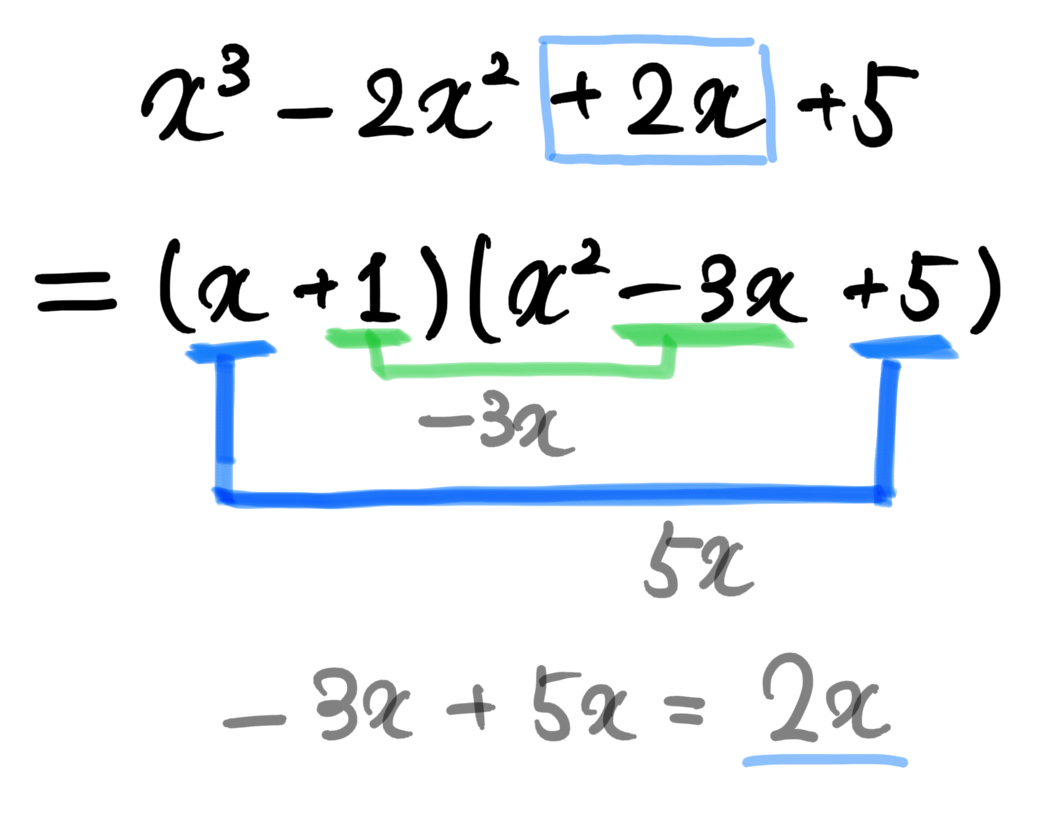 x³ - 2x² + 2x + 5
= (x + 1)(x² - 3x + 5)
-3x
5x
- 3x + 5x = 2x